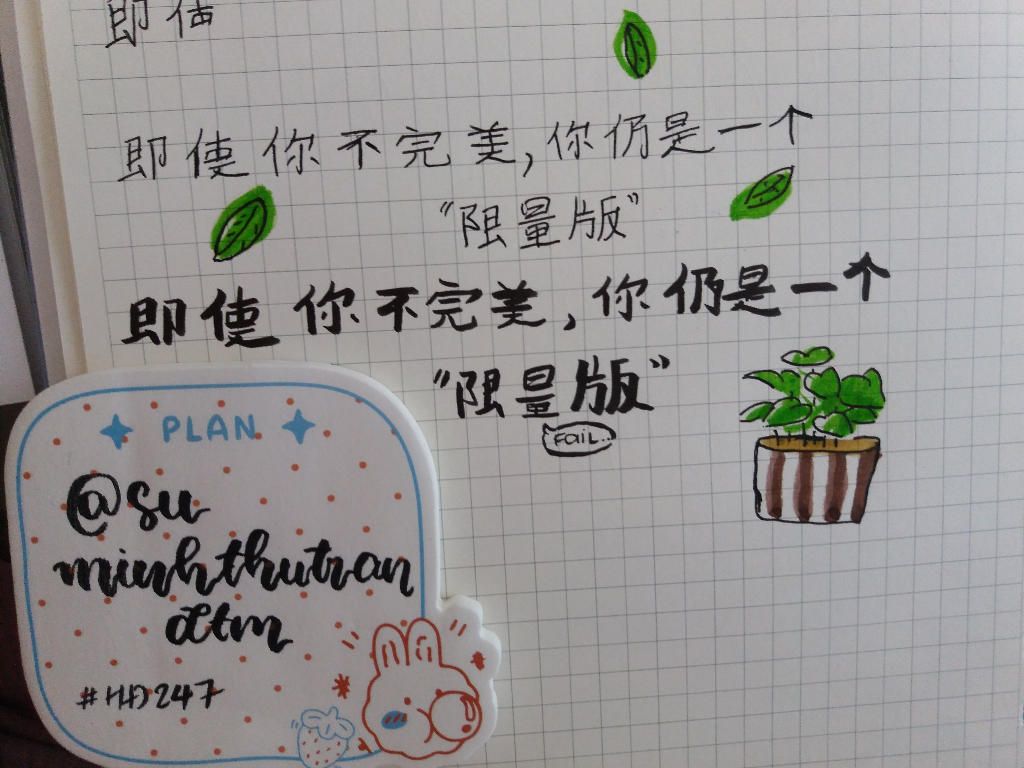 即使
即使你不完美,你仍是一个
“限量版”
即使你不完美,你仍是一个
“限量版”
FAIL..
PLAN
@su
minhthutran
dtm
#HD247